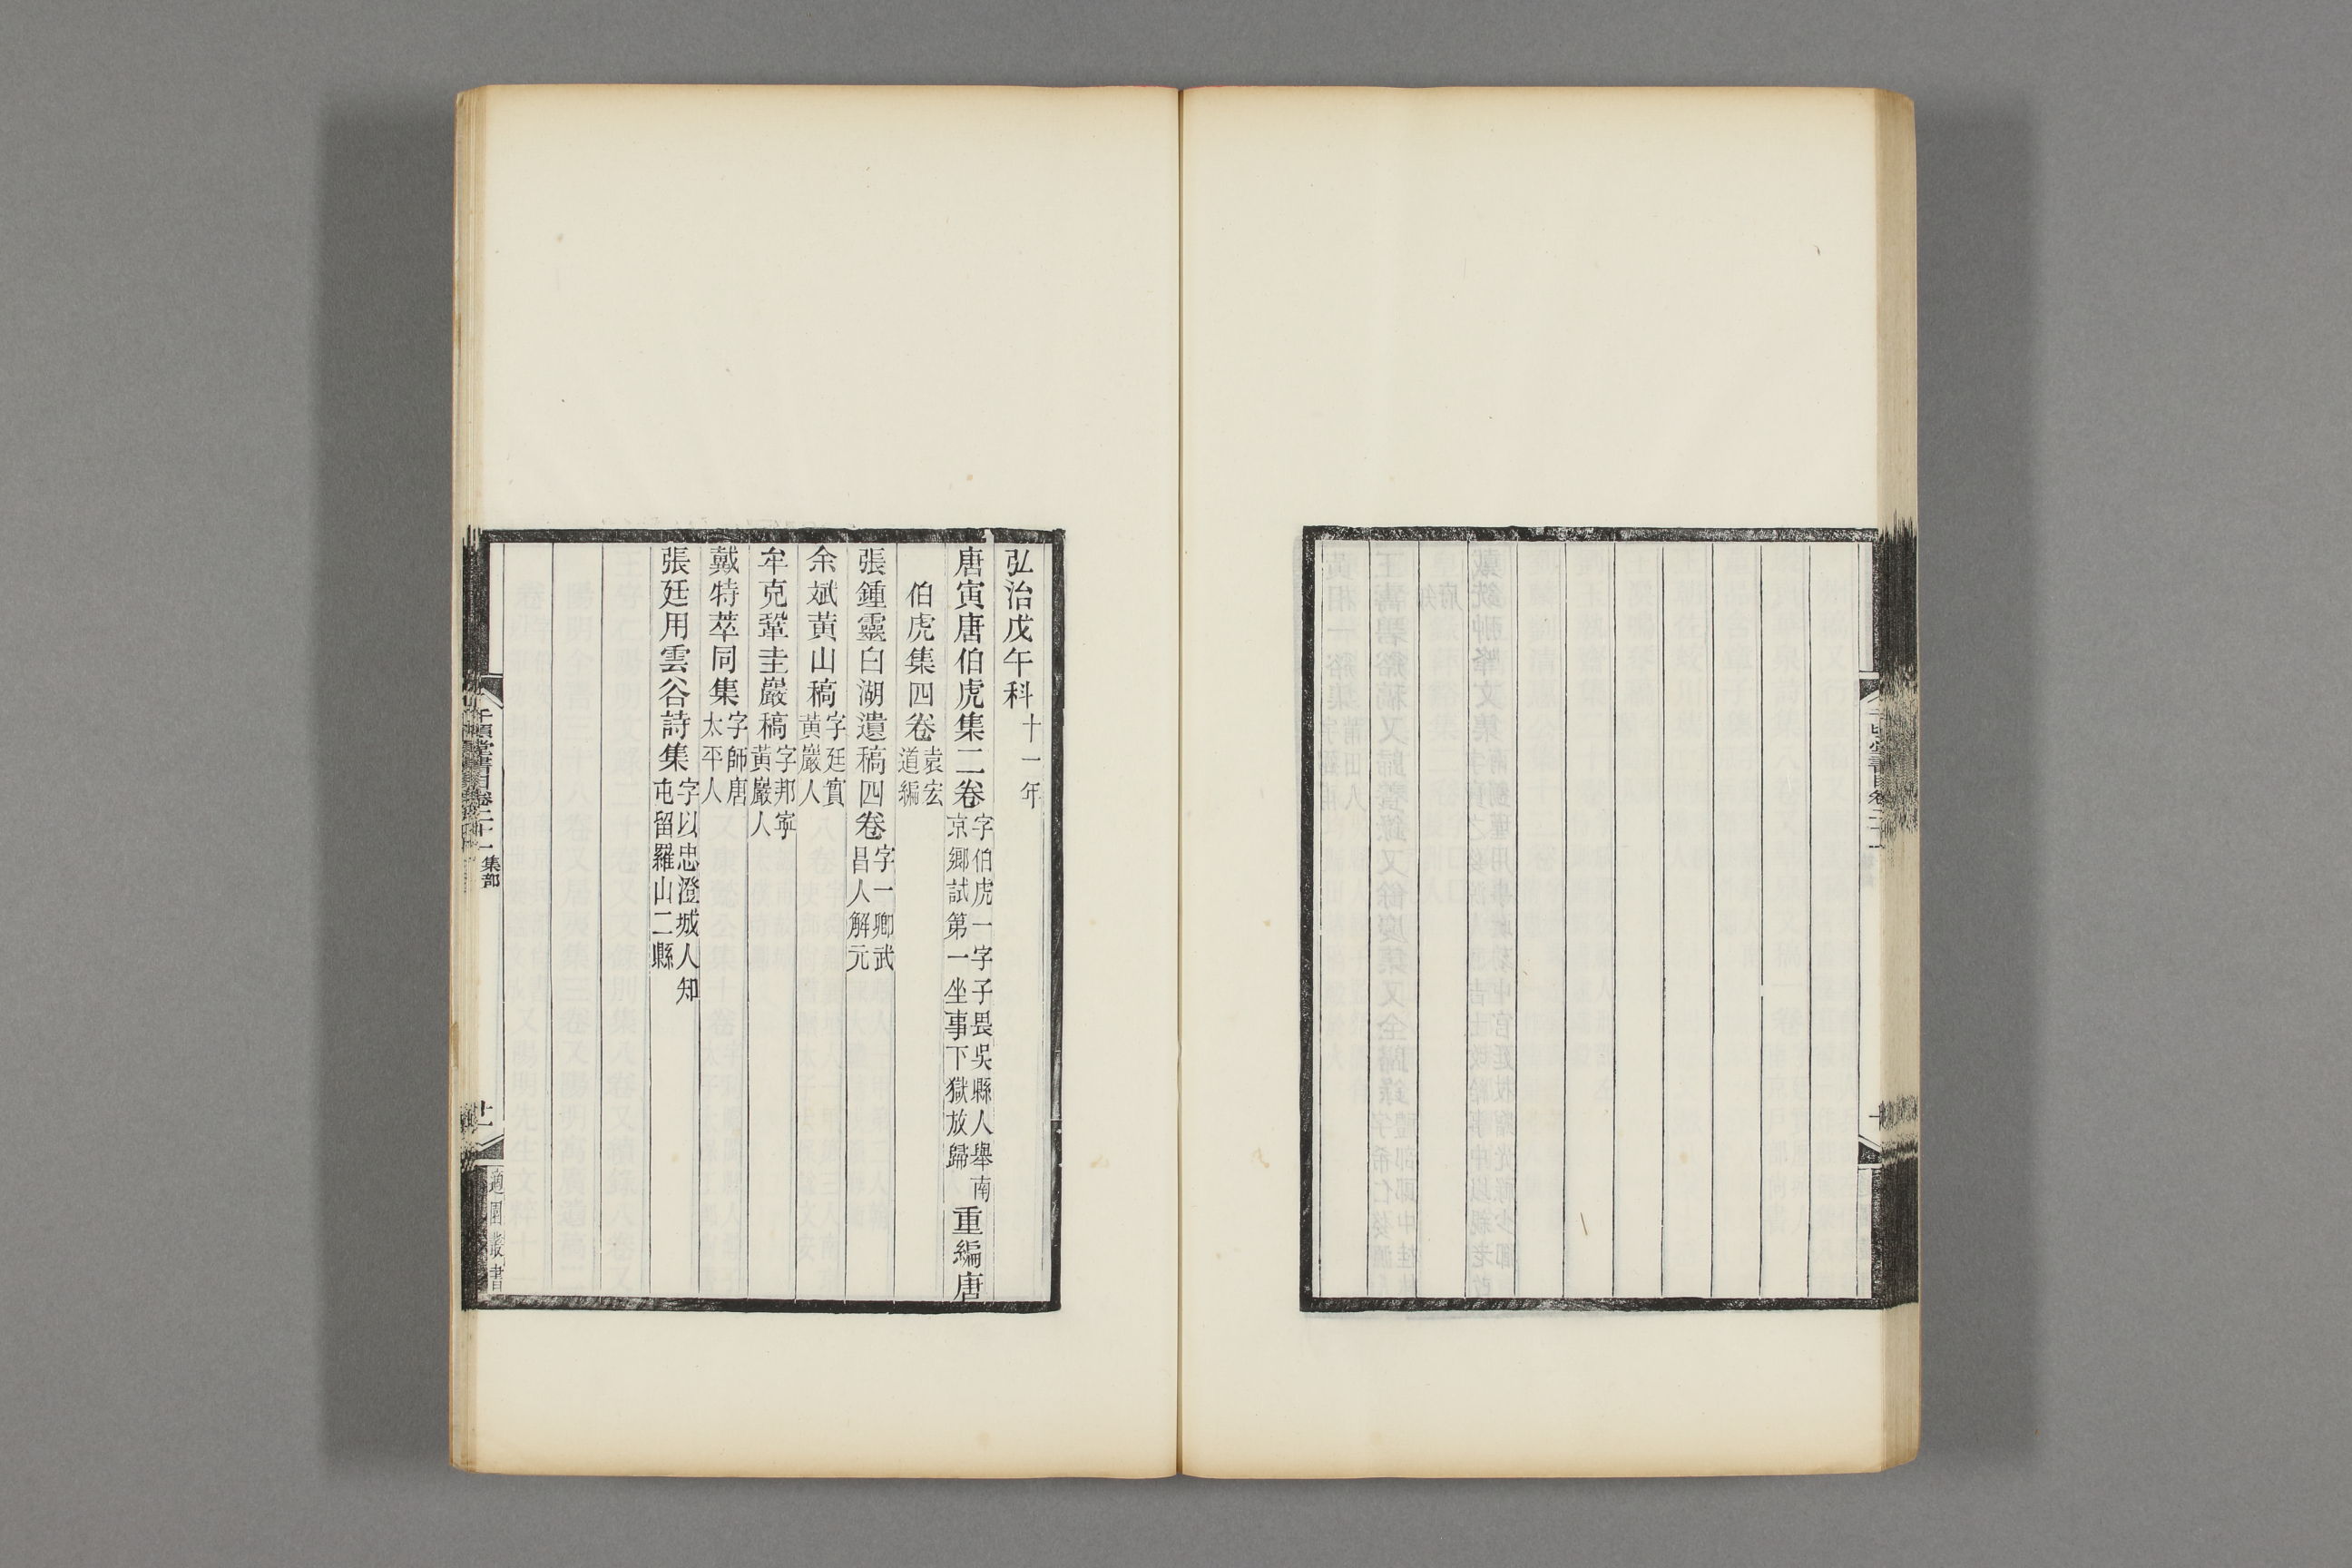 弘治戊午科十一年
唐寅唐伯虎集二卷字伯虎一字子畏吳縣人舉南京鄉試第一坐事下獄放歸重編唐
伯虎集四卷袁宏道編
張鍾靈白湖遺稿四卷字一卿武昌人解元
余斌黃山稿字廷實黃巖人
牟克鞏圭巖稿字邦寧黃巖人
戴特萃同集字師唐太平人
張廷用雲谷詩集字以忠澄城人知屯留羅山二縣
千頃堂書目卷二十一 集部
適園叢書